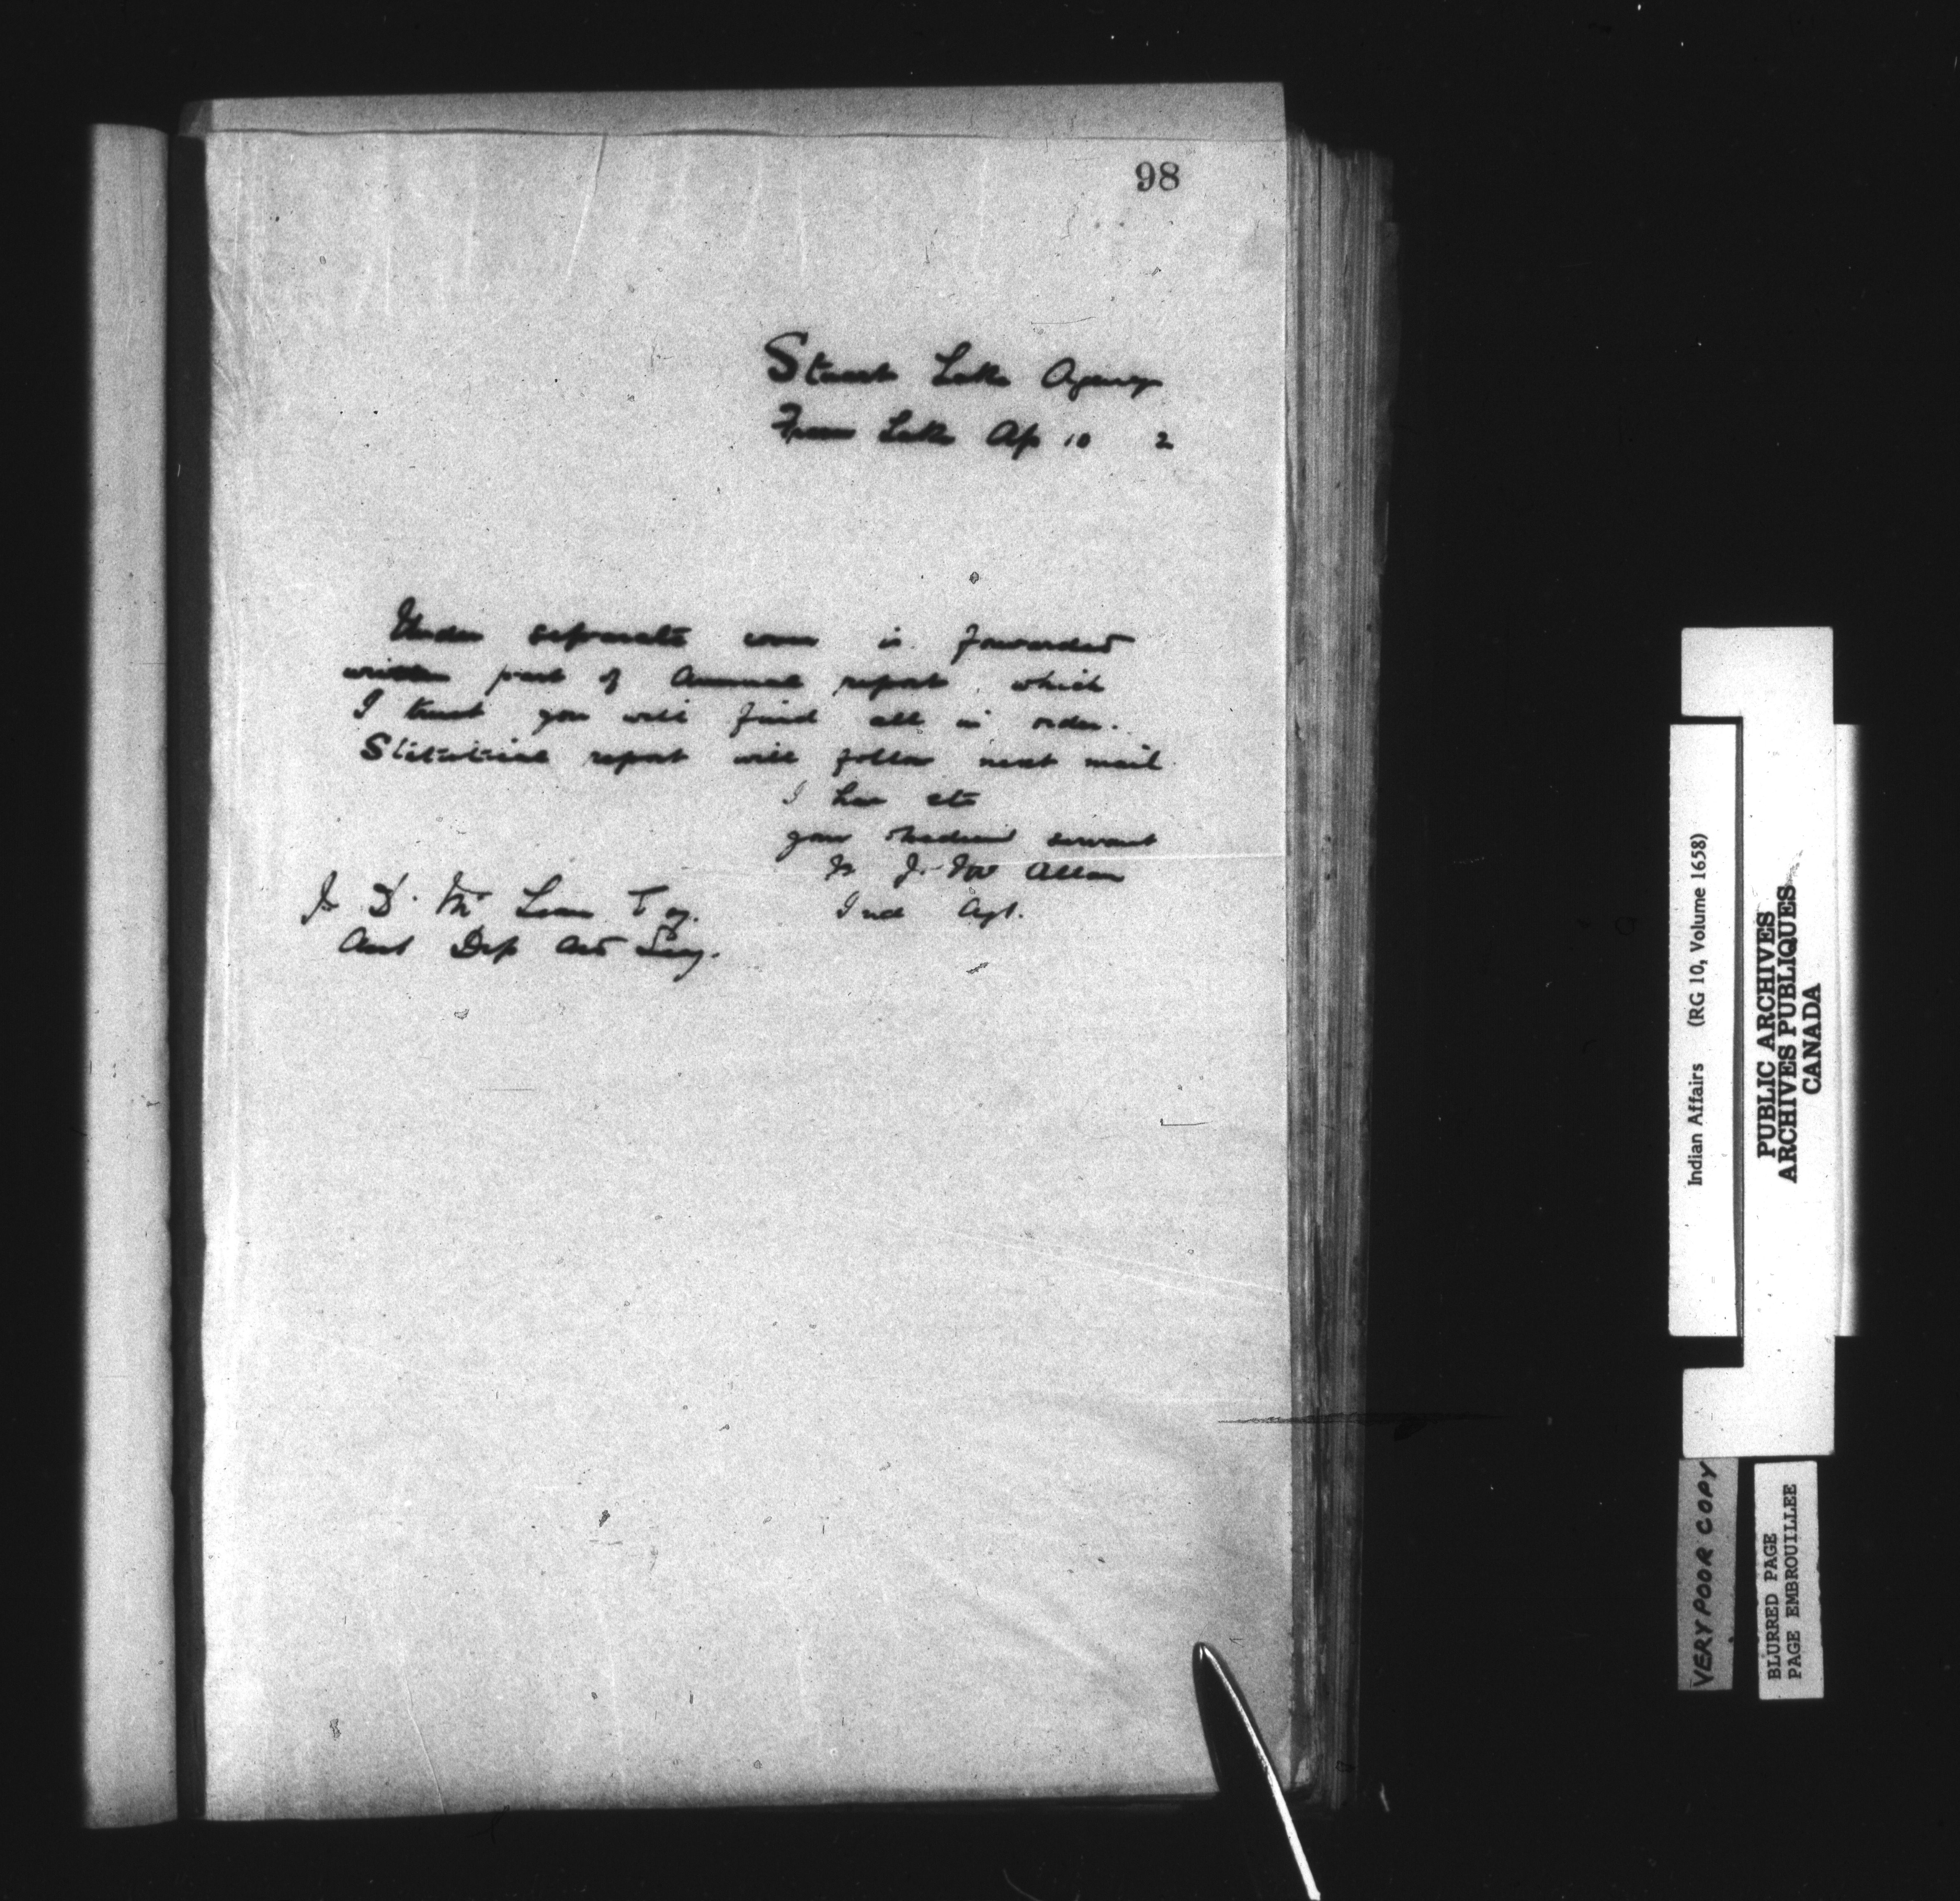 98
Stuart Lake Agency
Fraser Lake Ap 10 2
Under separate cover is forwarded
written part of Annual report, which
I trust you will find all in order.
Statistical report will follow next mail
I have etc
your obedient servant
W. J. McAllan
Ind Agt.
J. D. McLean Esq.
Asst Dep and Secy.
Indian Affairs (RG 10, Volume 1658)
PUBLIC ARCHIVES
ARCHIVES PUBLIQUES
CANADA
VERY POOR COPY
BLURRED PAGE
PAGE EMBROUILLEE